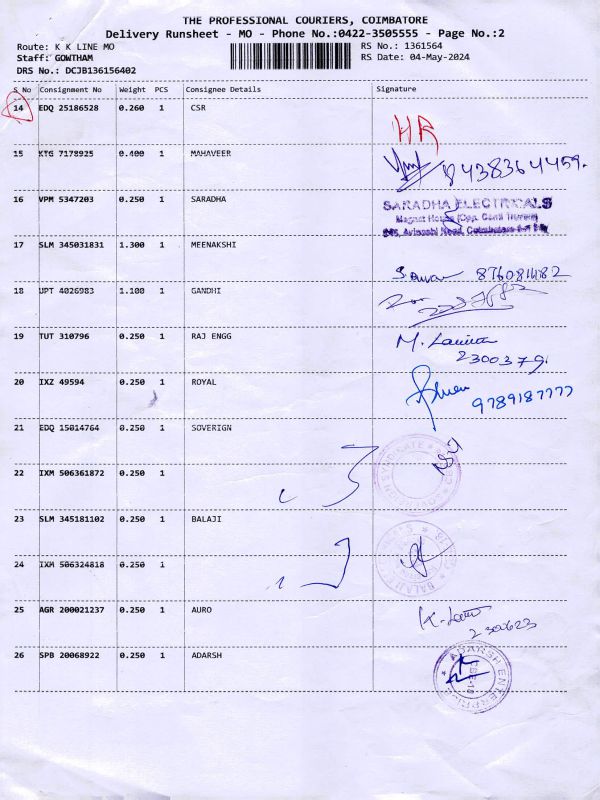 THE PROFESSIONAL COURIERS, COIMBATORE
Delivery Runsheet - MO - Phone No.:0422-3505555 - Page No.:2
Route: K K LINE MO
RS No.: 1361564
Staff: GOWTHAM
RS Date: 04-May-2024
DRS No.: DCJB136156402
S No Consignment No Weight PCS Consignee Details Signature
14 EDQ 25186528 0.260 1 CSR
HR
15 KTG 7178925 0.400 1 MAHAVEER
8438364459.
16 VPM 5347203 0.250 1 SARADHA
SARADHA ELECTRICALS
17 SLM 345031831 1.300 1 MEENAKSHI
18 JPT 4026983 1.100 1 GANDHI
19 TUT 310796 0.250 1 RAJ ENGG
M.
2300379.
20 IXZ 49594 0.250 1 ROYAL
9789187777
21 EDQ 15014764 0.250 1 SOVERIGN
22 IXM 506361872 0.250 1
SYNDICATE
23 SLM 345181102 0.250 1 BALAJI
24 IXM 506324818 0.250 1
BALAJI
25 AGR 200021237 0.250 1 AURO
230623
26 SPB 20068922 0.250 1 ADARSH
ADARSH ENTERPRISE